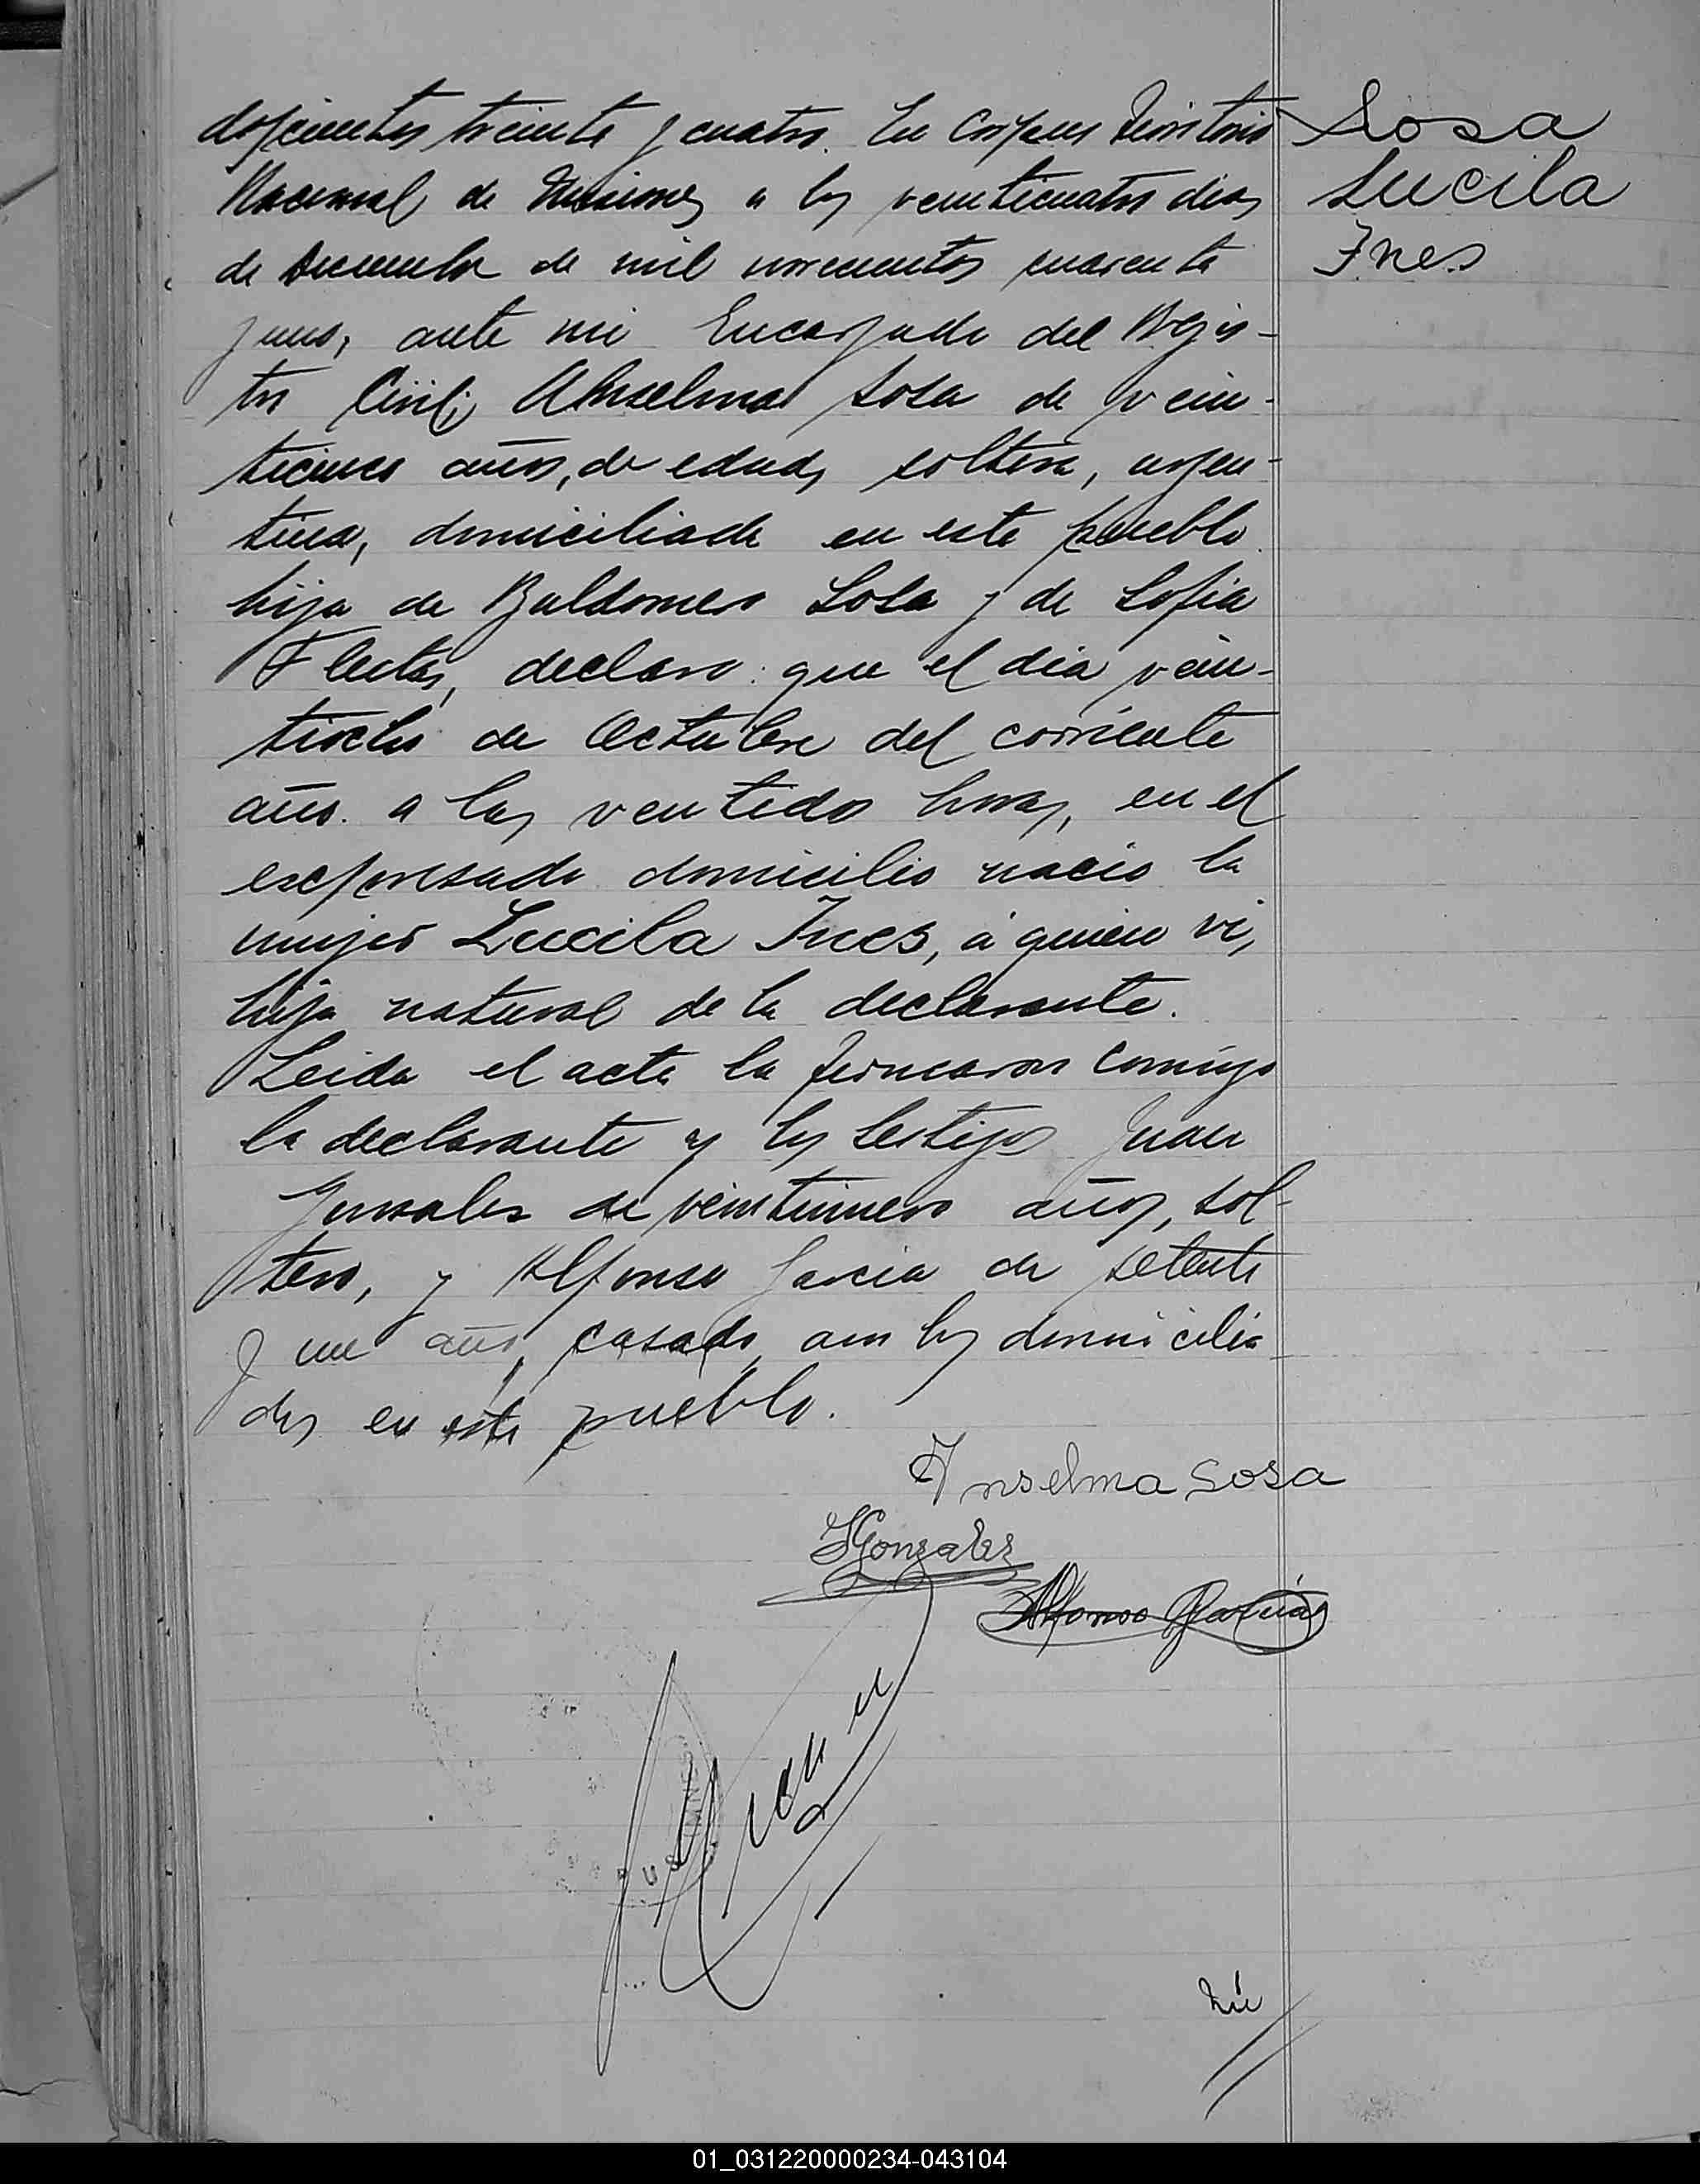 doscientos treinta y cuatro. En Corpus Territorio
Nacional de Misiones a los veinticuatro dias
de Diciembre de mil novecientos cuarenta
y uno, ante mi Encargado del Regis-
tro Civil, Anselma Sosa de vein-
ticinco años, de edad, soltera, argen-
tina, domiciliada en este pueblo
hija de Baldomero Sosa y de Sofia
Fleitas, declaro: que el dia vein-
tiocho de Octubre del corriente
año. a las ventidos horas, en el
expresado domicilio nacio la
mujer Lucila Ines, á quien vi,
hija natural de la declarante.
Leida el acta la firmaron comigo
la declarante y los testigos Juan
Gonzales de veintinueve años, sol-
tero, y Alfonso Garcia de setenta
y un años, casado, ambos domicilia
dos en este pueblo.
Sosa
Lucila
Ines
Anselma Sosa
JGonzalez
Alfonso Garcia
01_031220000234-043104